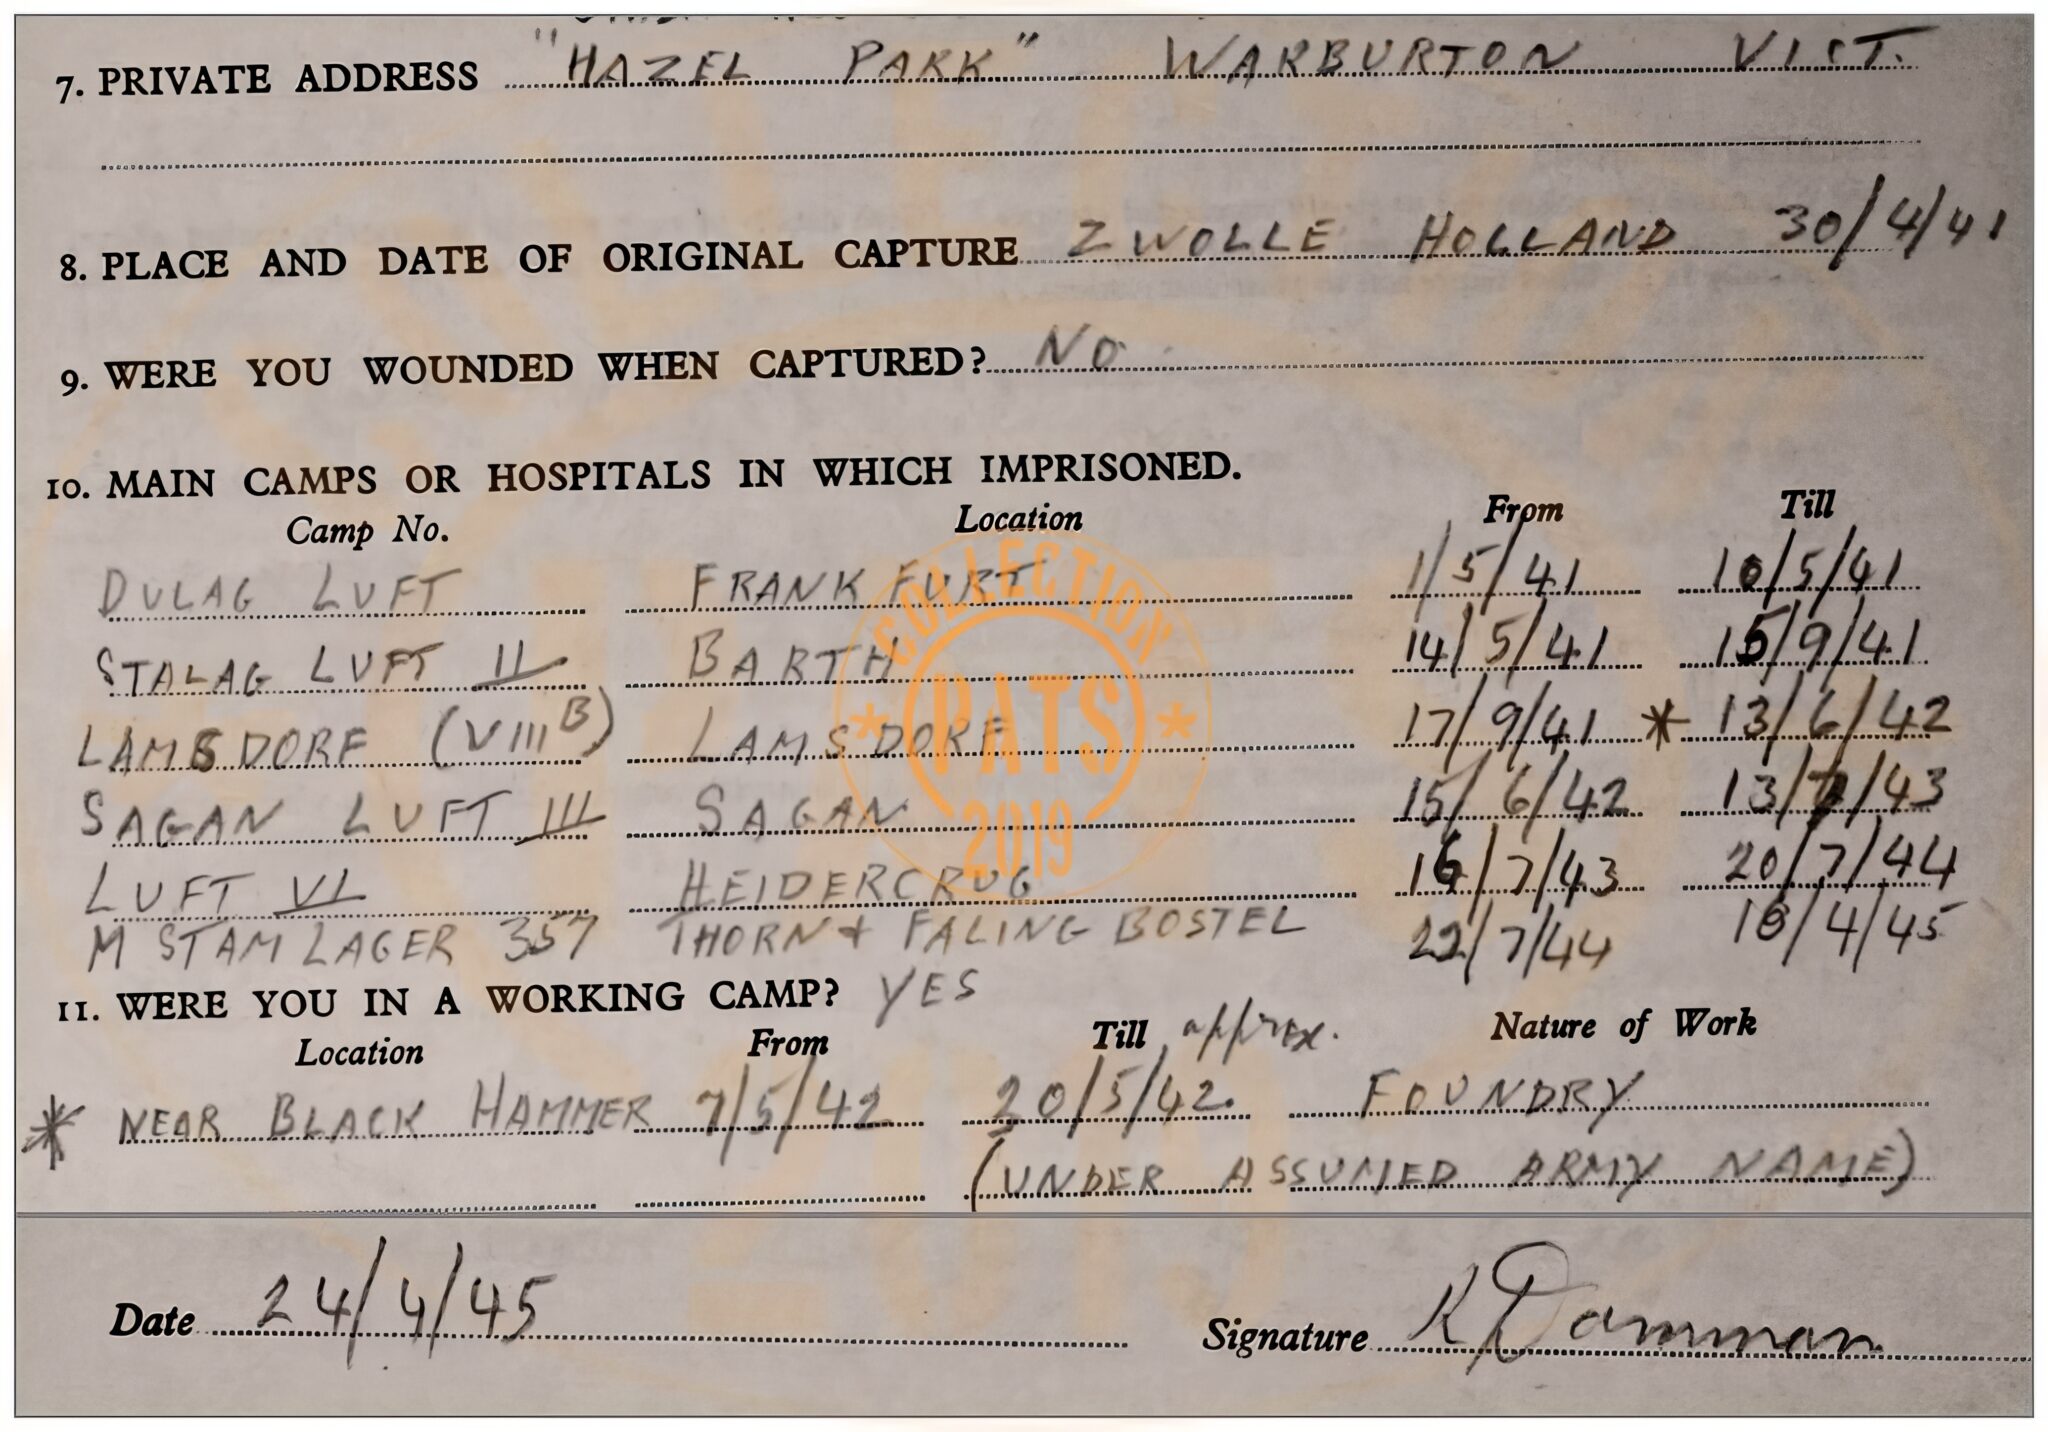 7. PRIVATE ADDRESS "HAZEL PARK" WARBURTON VICT.
8. PLACE AND DATE OF ORIGINAL CAPTURE ZWOLLE HOLLAND 30/4/41
9. WERE YOU WOUNDED WHEN CAPTURED? NO
10. MAIN CAMPS OR HOSPITALS IN WHICH IMPRISONED.
Camp No. Location From Till
DULAG LUFT FRANKFURT 1/5/41 10/5/41
STALAG LUFT II BARTH 14/5/41 15/9/41
LAMSDORF (VIII B) LAMSDORF 17/9/41 * 13/6/42
SAGAN LUFT III SAGAN 15/6/42 13/7/43
LUFT VI HEIDERCRUG 16/7/43 20/7/44
M STAMLAGER 357 THORN + FALINGBOSTEL 22/7/44 18/4/45
11. WERE YOU IN A WORKING CAMP? YES
Location From Till approx. Nature of Work
* NEAR BLACK HAMMER 7/5/42 20/5/42. FOUNDRY
(UNDER ASSUMED ARMY NAME)
Date 24/4/45 Signature K Damman
COLLECTION
* PATS *
2019